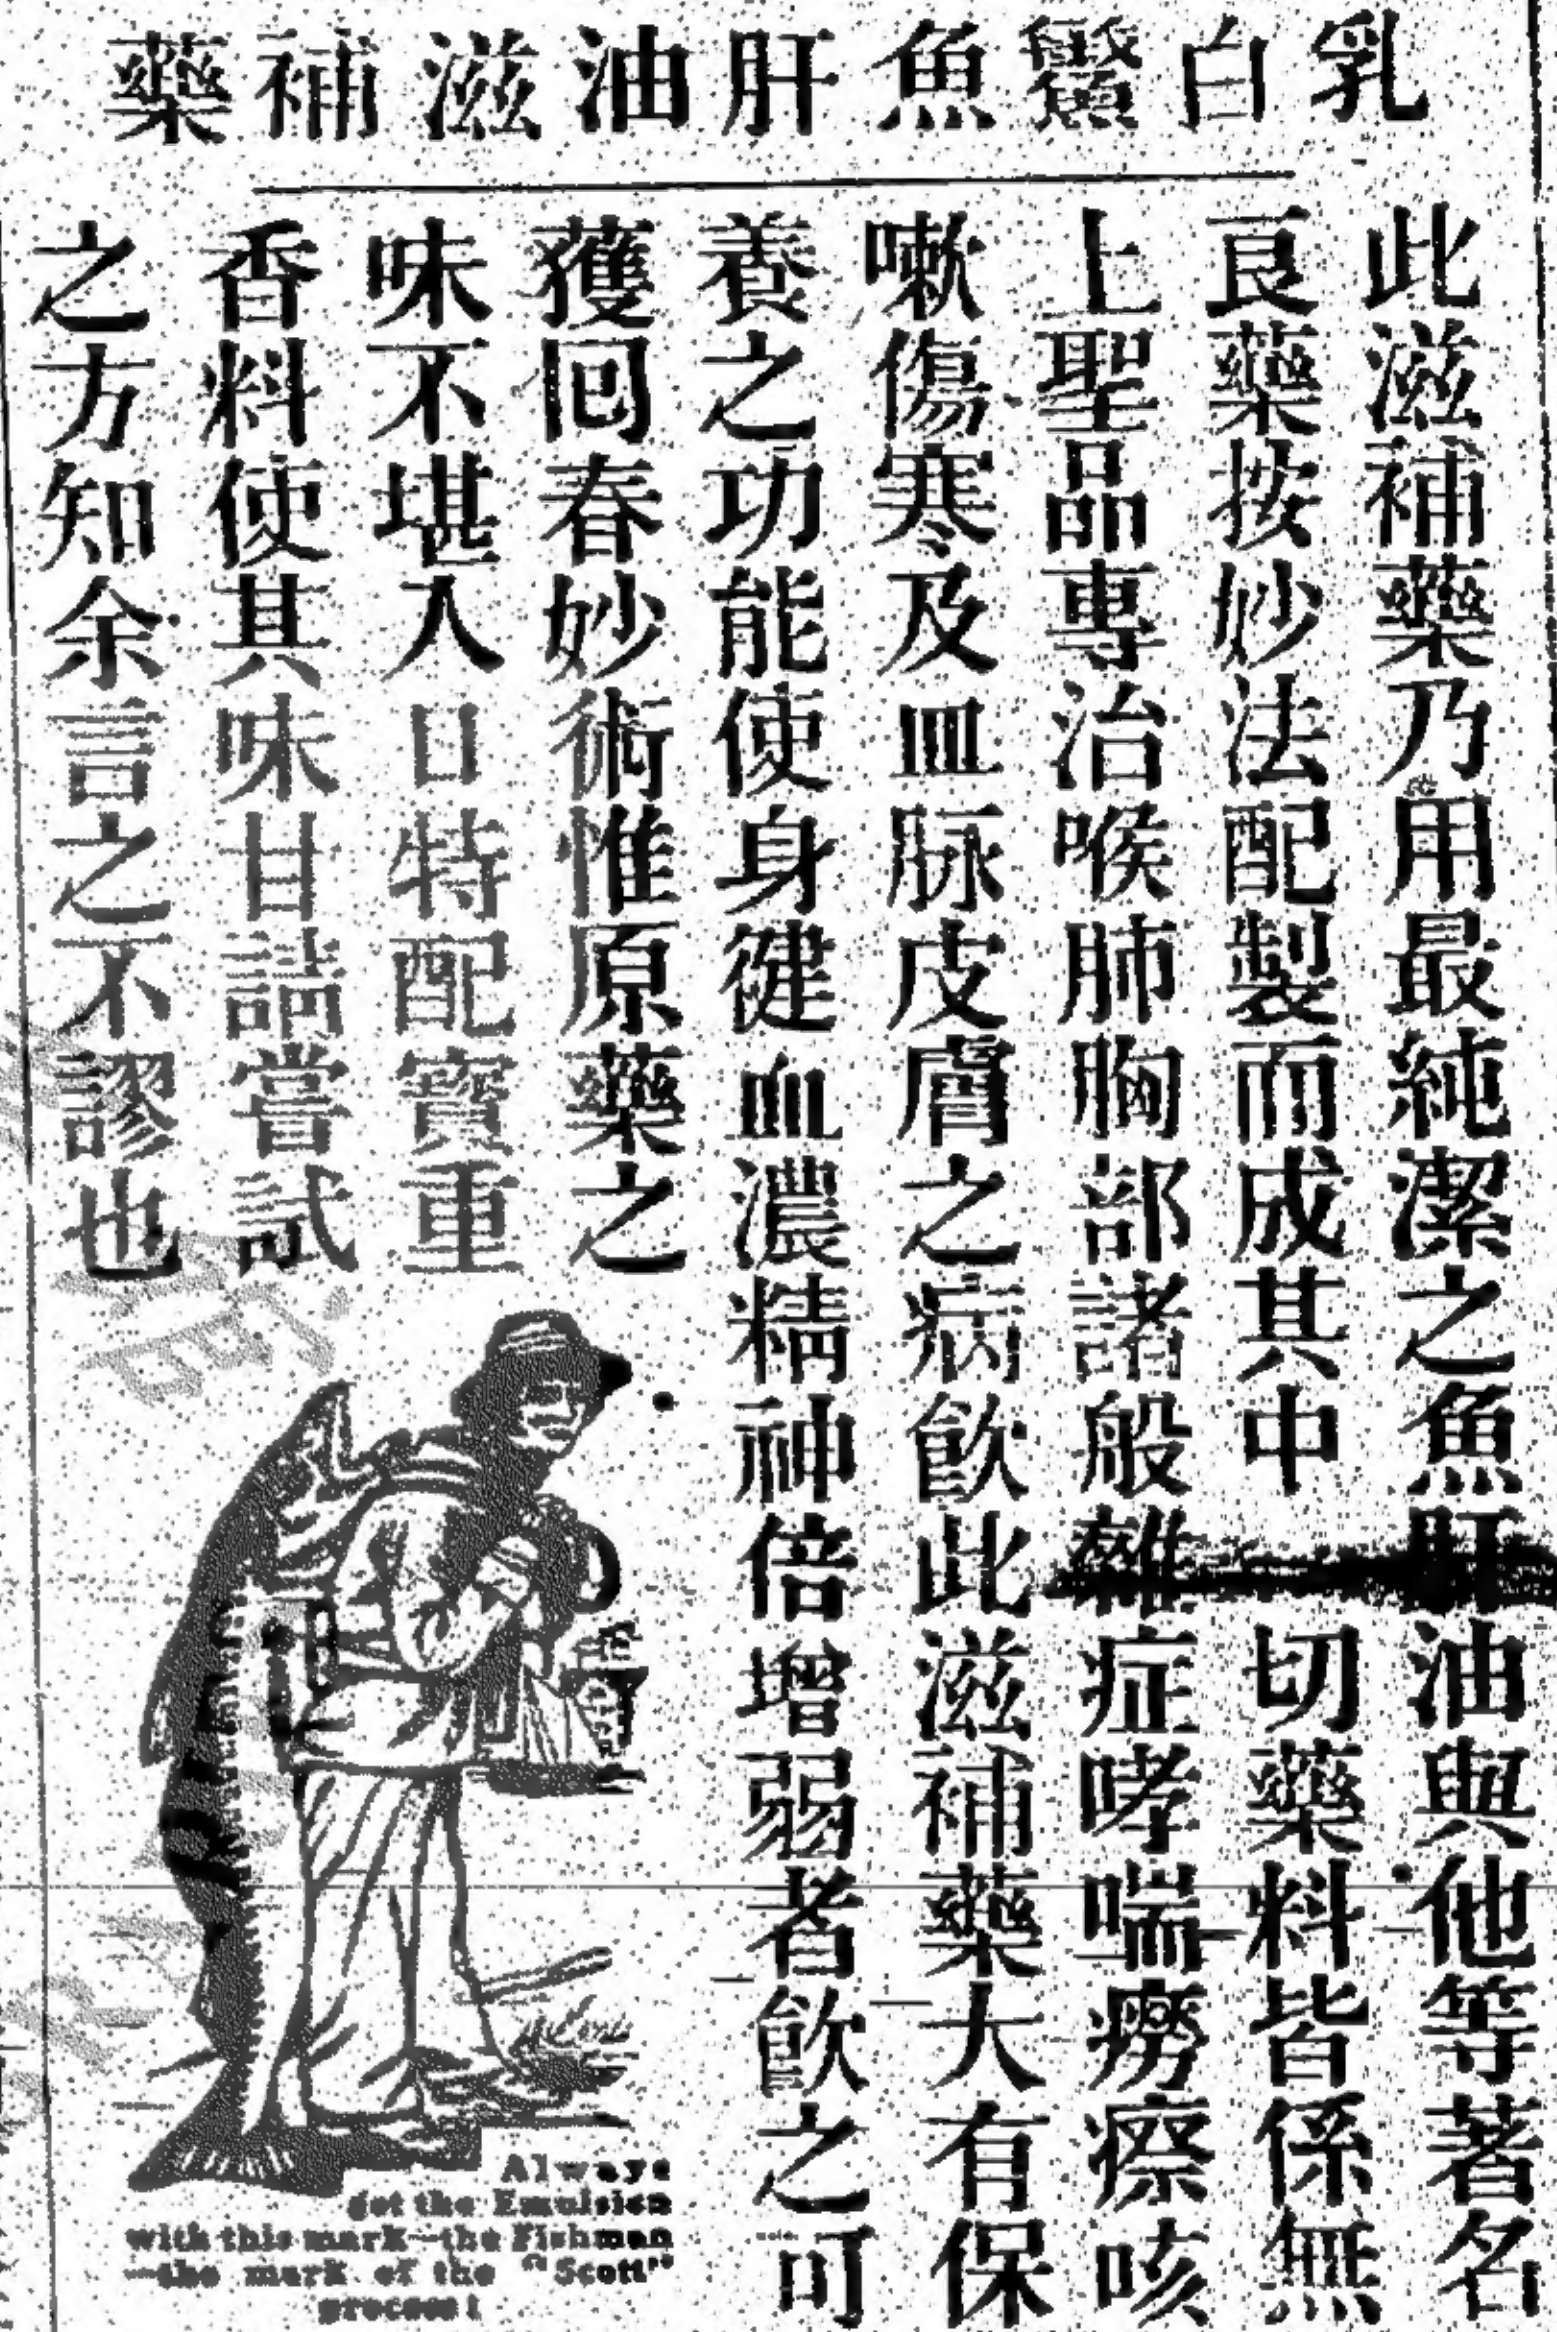 乳白鰵魚肝油滋補藥
此滋補藥乃用最純潔之魚肝油與他等著名
良藥按妙法配製而成其中一切藥料皆係無
上聖品專治喉肺胸部諸般雜症哮喘癆瘵咳
嗽傷寒及血脉皮膚之病飲此滋補藥大有保
養之功能使身健血濃精神倍增弱者飲之可
獲回春妙術惟原藥之
味不堪入口特配寶重
香料使其味甘請嘗試
之方知余言之不謬也
Always
get the Emulsion
with this mark—the Fishman
—the mark of the "Scott"
process!